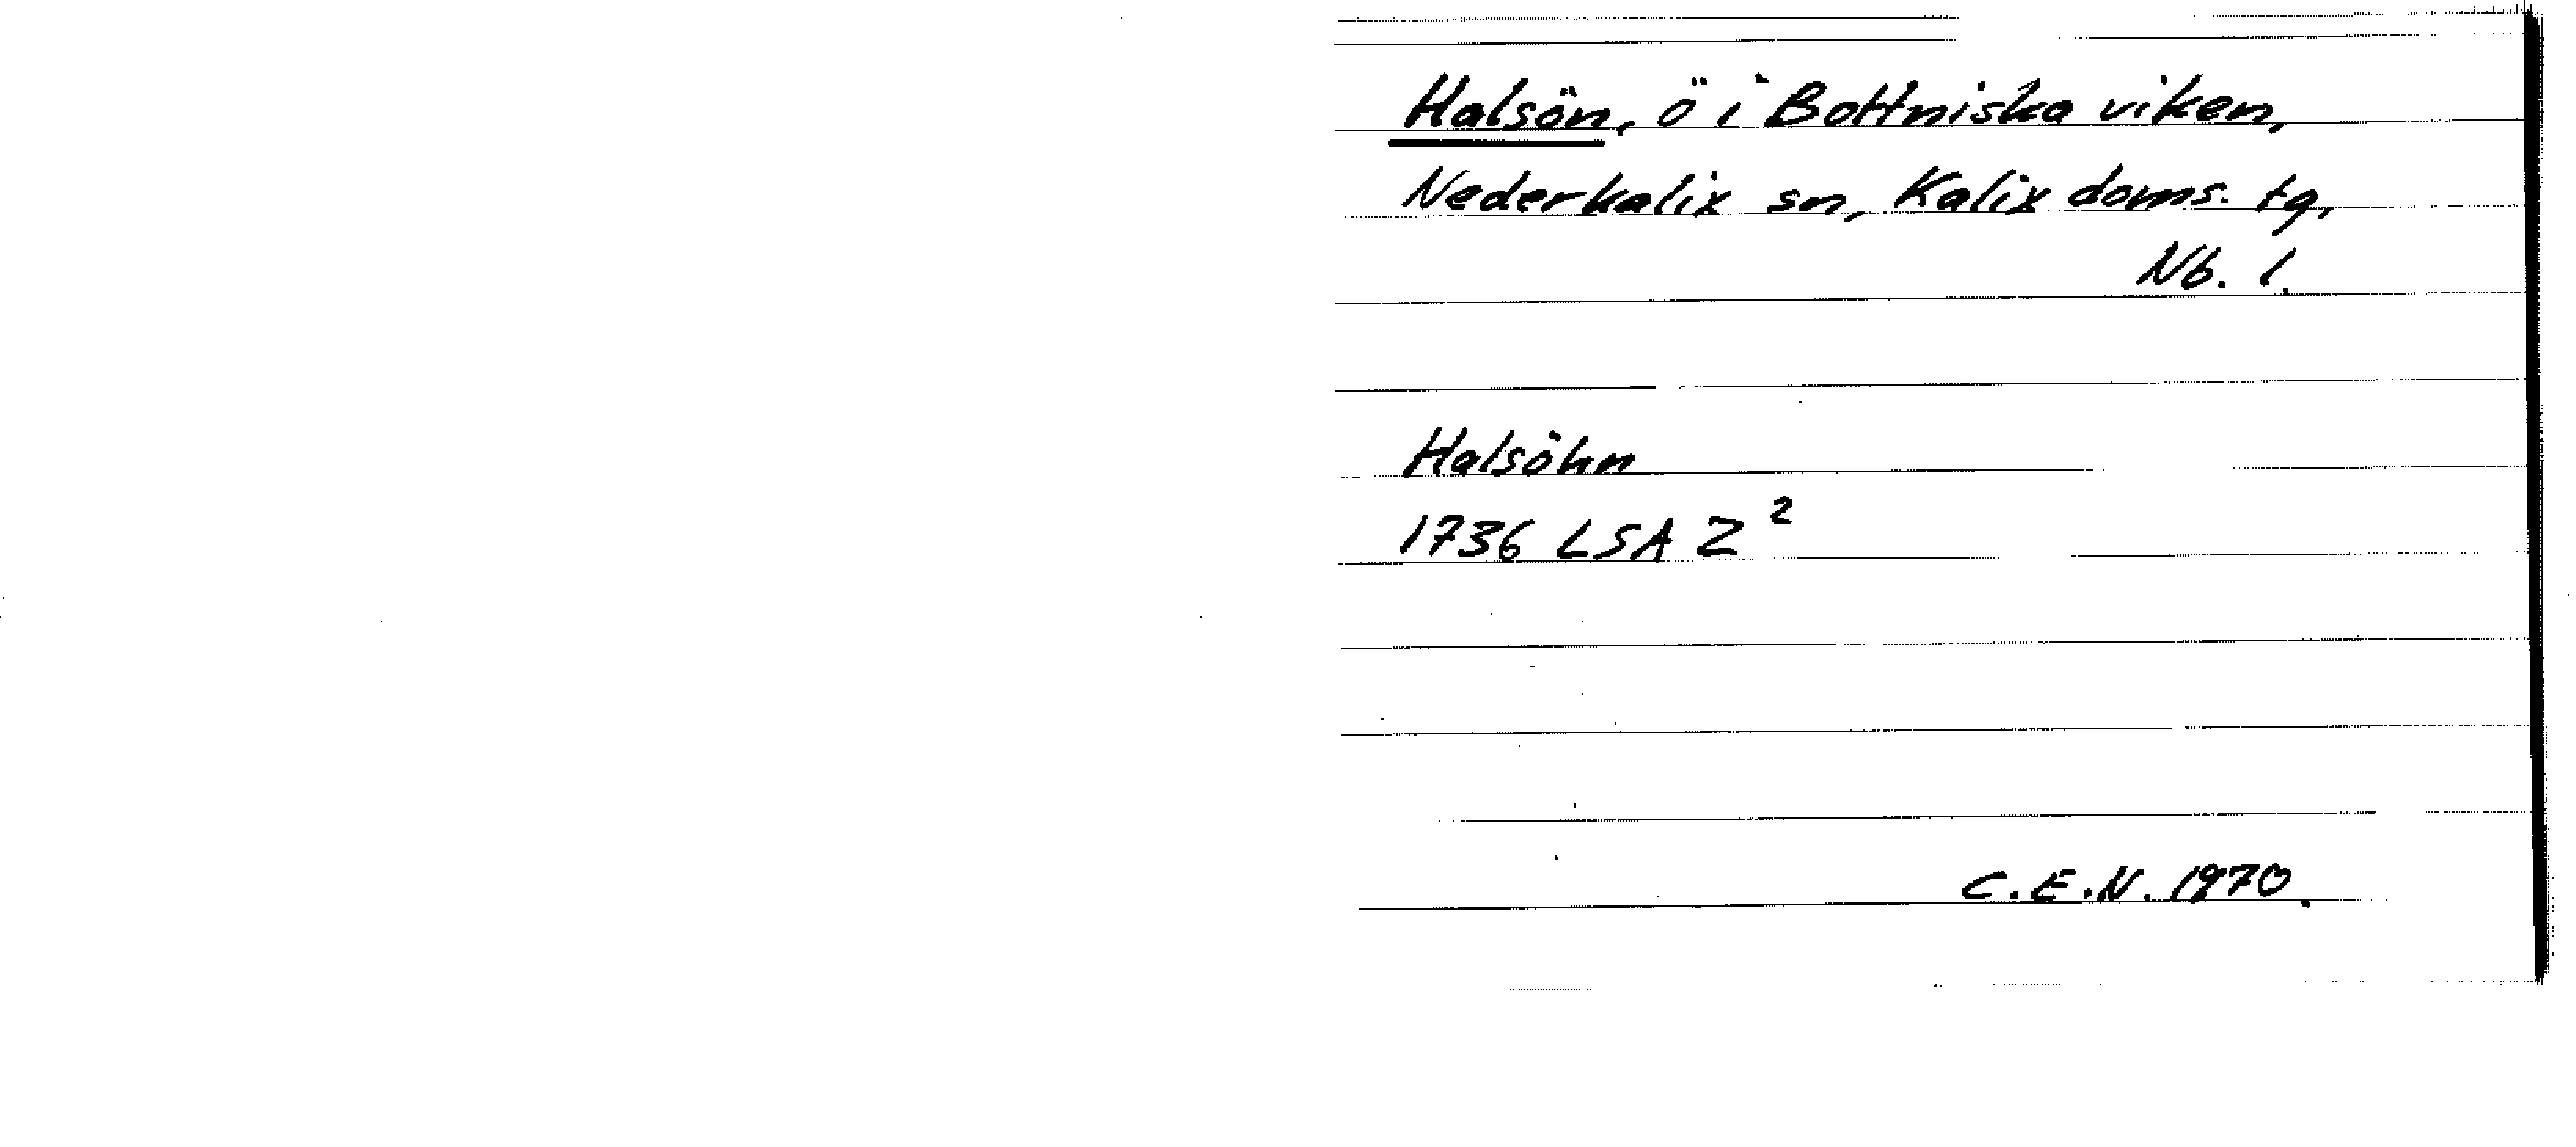 Halsön, ö i Bottniska viken,
Nederkalix sn, Kalix doms. tg,
Nb. l.
Halsöhn
1736 LSA Z²
C.E.N. 1970.